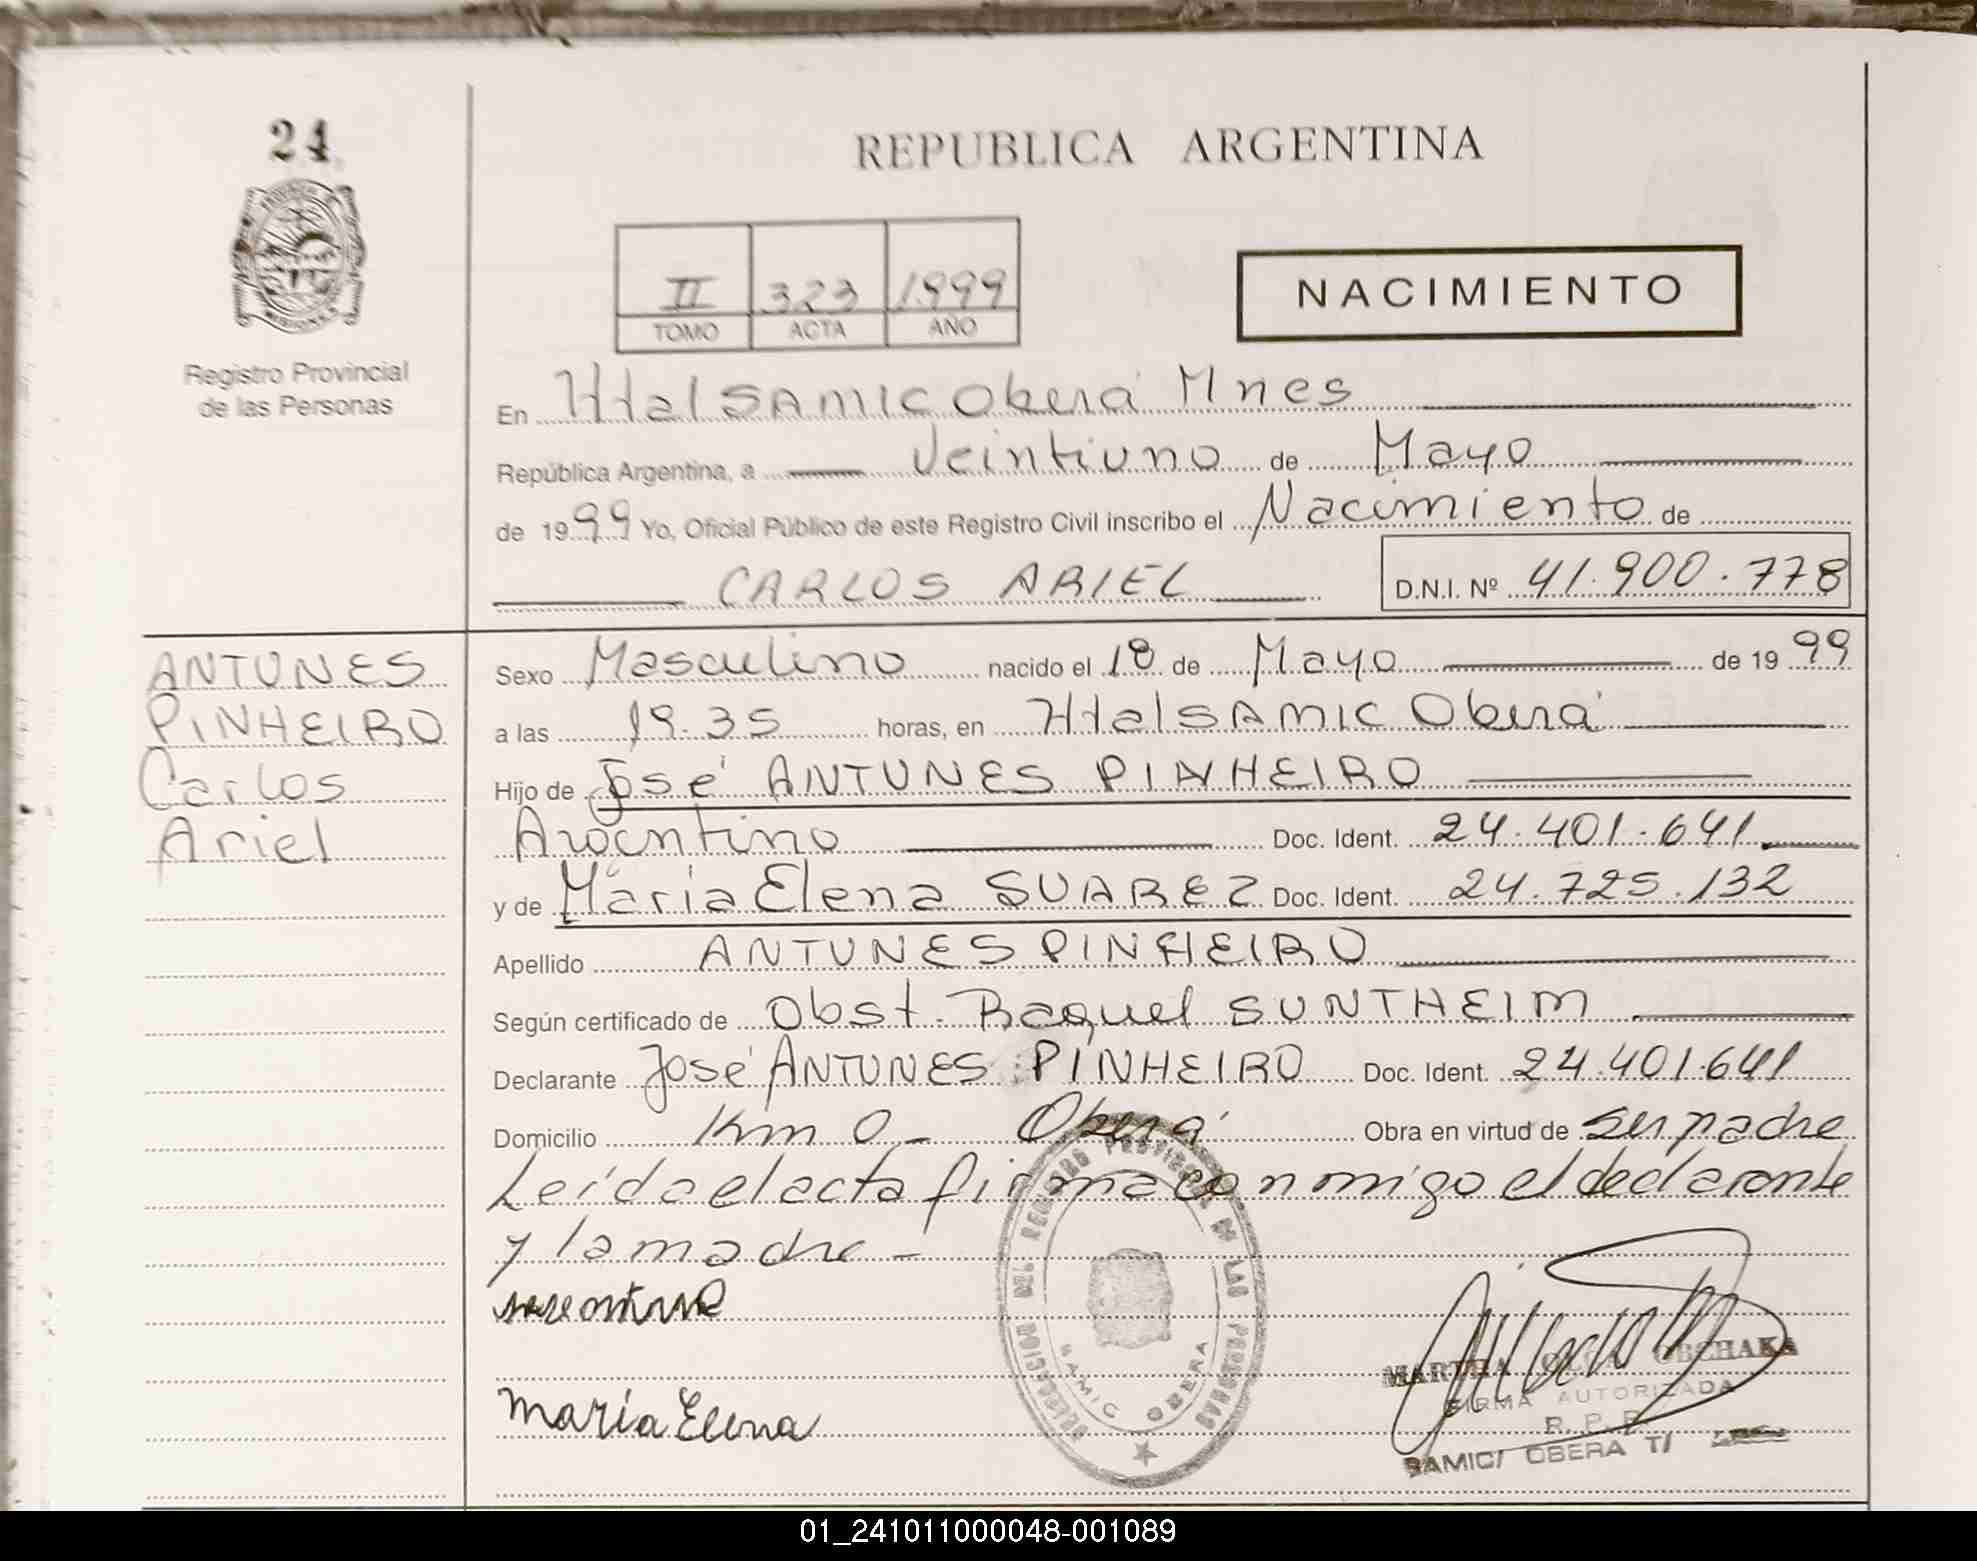 24
REPUBLICA ARGENTINA
MISIONES
Registro Provincial
de las Personas
II 323 1999
TOMO ACTA AÑO
NACIMIENTO
En Htal SAMIC Oberá Mnes
República Argentina, a Veintiuno de Mayo
de 1999 Yo, Oficial Público de este Registro Civil inscribo el Nacimiento de
CARLOS ARIEL D.N.I. Nº 41.900.778
ANTUNES
PINHEIRO
Carlos
Ariel
Sexo Masculino nacido el 18 de Mayo de 1999
a las 19.35 horas, en Htal SAMIC Oberá
Hijo de José ANTUNES PINHEIRO
Argentino Doc. Ident. 24.401.641
y de María Elena SUAREZ Doc. Ident. 24.725.132
Apellido ANTUNES PINHEIRO
Según certificado de Obst. Raquel SUNTHEIM
Declarante José ANTUNES PINHEIRO Doc. Ident. 24.401.641
Domicilio Km 0 - Oberá Obra en virtud de ser padre
Leída el acta firma conmigo el declarante
y la madre -
DIRECCION DEL REGISTRO PROVINCIAL DE LAS PERSONAS
SAMIC OBERA
María Elena
MARTHA OLGA OBSHAKA
FIRMA AUTORIZADA
R. P. P.
SAMIC/ OBERA T/
01_241011000048-001089